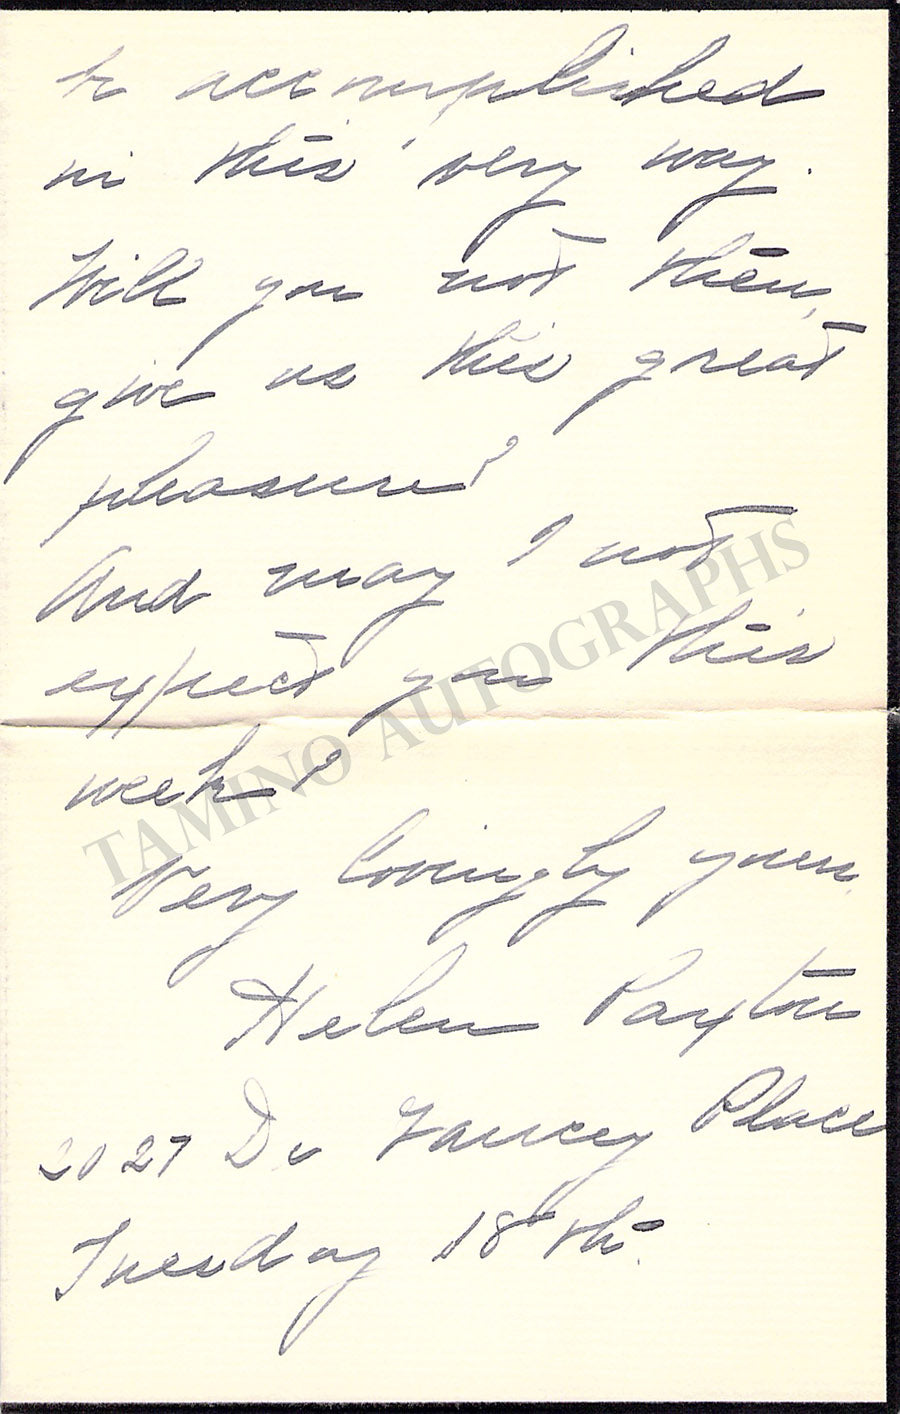 be accomplished
in this very way.
Will you not then,
give us this great
pleasure?
And may I not
expect you this
week?
Very lovingly yours,
Helen Paxton
2027 De Lancey Place
Tuesday 18th.
TAMINO AUTOGRAPHS